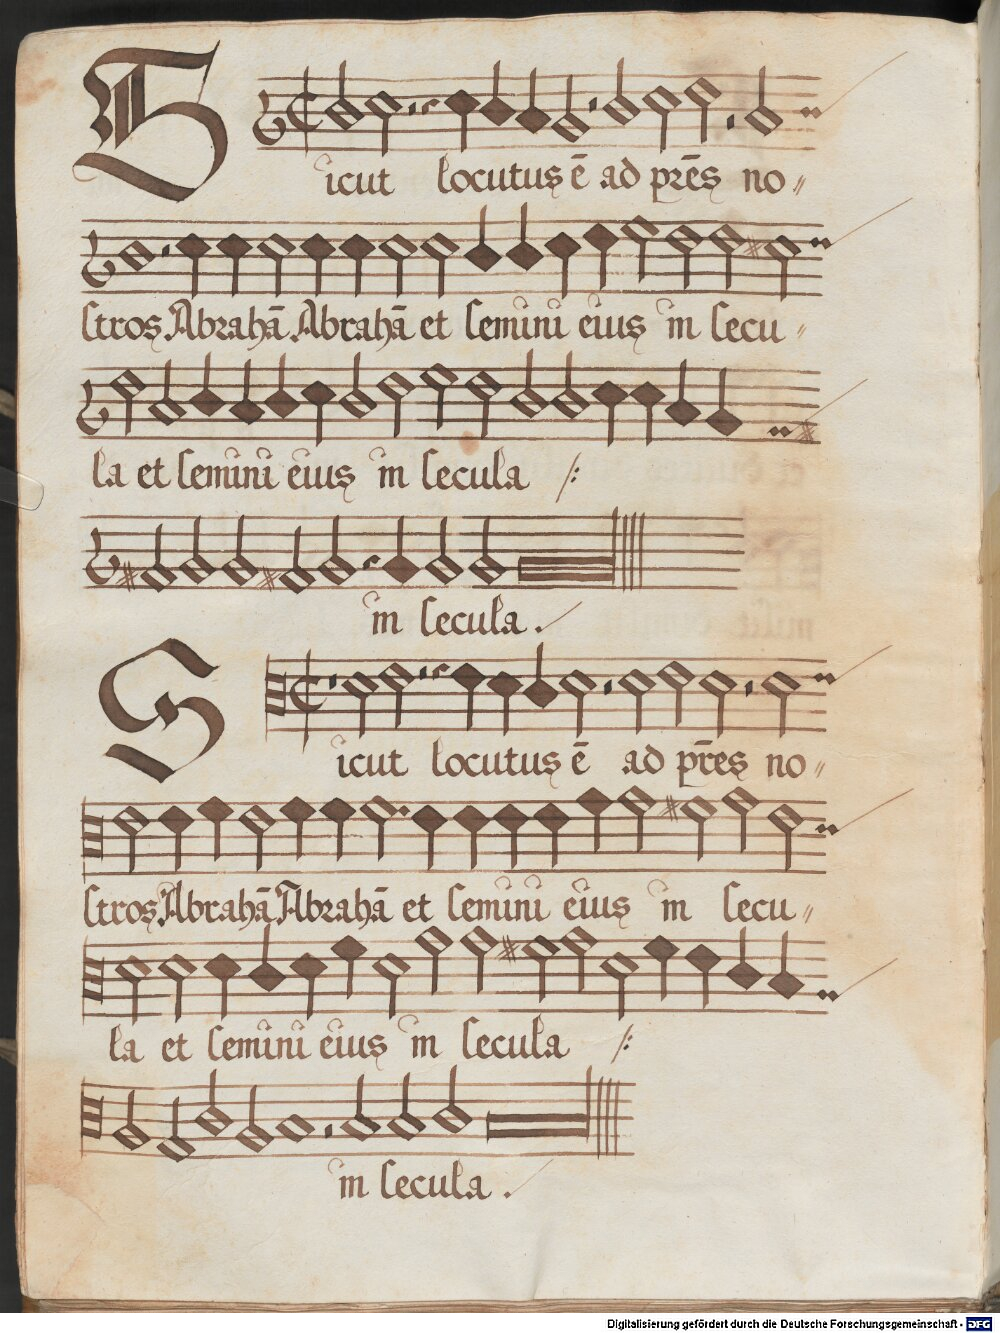 Sicut locutus ē ad pr̄es no〃
stros Abrahā Abrahā et semini eius in secu〃
la et semini eius in secula /:
in secula.
Sicut locutus ē ad pr̄es no〃
stros Abrahā Abrahā et semini eius in secu〃
la et semini eius in secula /:
in secula.
Digitalisierung gefördert durch die Deutsche Forschungsgemeinschaft - DFG